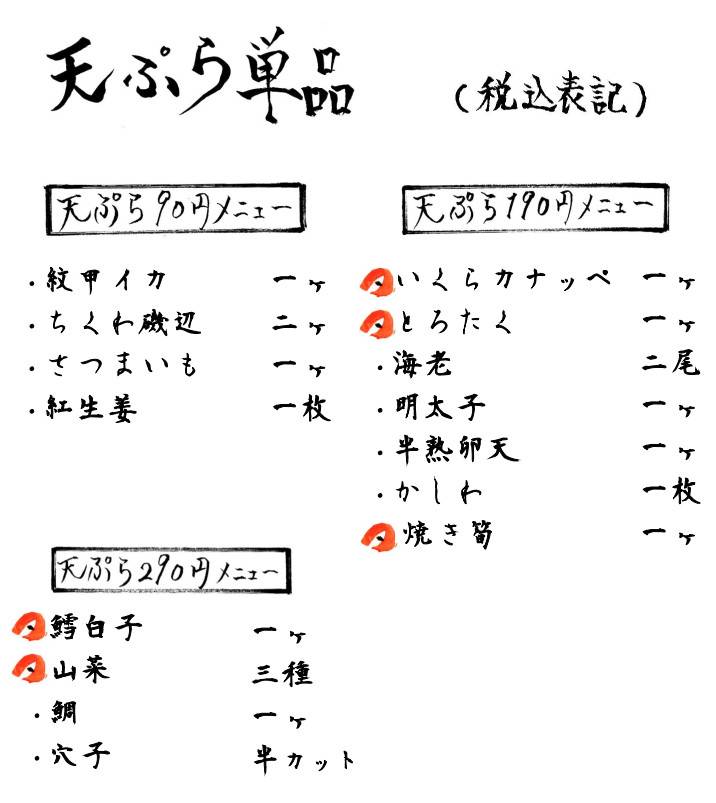 天ぷら単品 （税込表記）
天ぷら90円メニュー
・紋甲イカ 一ヶ
・ちくわ磯辺 二ヶ
・さつまいも 一ヶ
・紅生姜 一枚
天ぷら190円メニュー
いくらカナッペ 一ヶ
とろたく 一ヶ
・海老 二尾
・明太子 一ヶ
・半熟卵天 一ヶ
・かしわ 一枚
焼き筍 一ヶ
天ぷら290円メニュー
鱈白子 一ヶ
山菜 三種
・鯛 一ヶ
・穴子 半カット